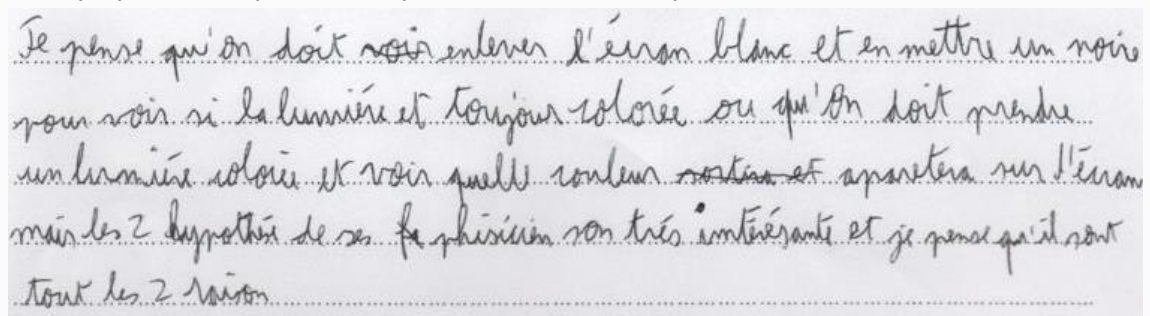 Je pense qu'on doit voir enlever l'écran blanc et en mettre un noire
pour voir si la lumiére et toujour colorée ou qu'on doit prendre
un lumiére colorée et voir quelle couleur sortira et aparetera sur l'écran
mais les 2 hypothése de ses fa phisicien son trés intérésante et je pense qu'il sont
tout les 2 raison